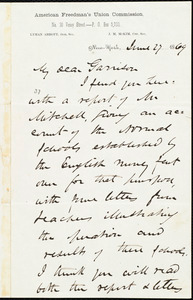 AMERICAN FREEDMAN'S UNION COMMISSION.
LYMAN ABBOTT, Gen. Sec. J. M. McKIM, Cor. Sec.
New-York, June 27 1869
My dear Garrison
I send you here-
with a report of Mr
Mitchell giving an ac-
count of the Normal
schools established by
the English money, sent
over for that purpose,
with some letters from
teachers illustrating
the operation and
results of these schools.
I think you will read
both the report & letters